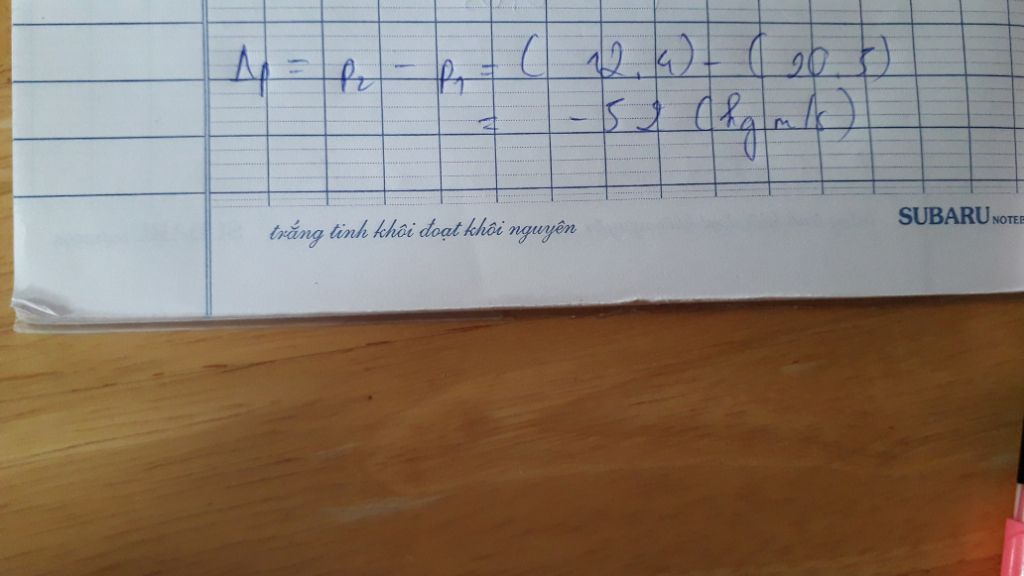 Δp = p₂ - p₁ = ( 12.4) - ( 20.5)
= - 52 (kg m/s)
trắng tinh khôi đoạt khôi nguyên
SUBARU NOTEB